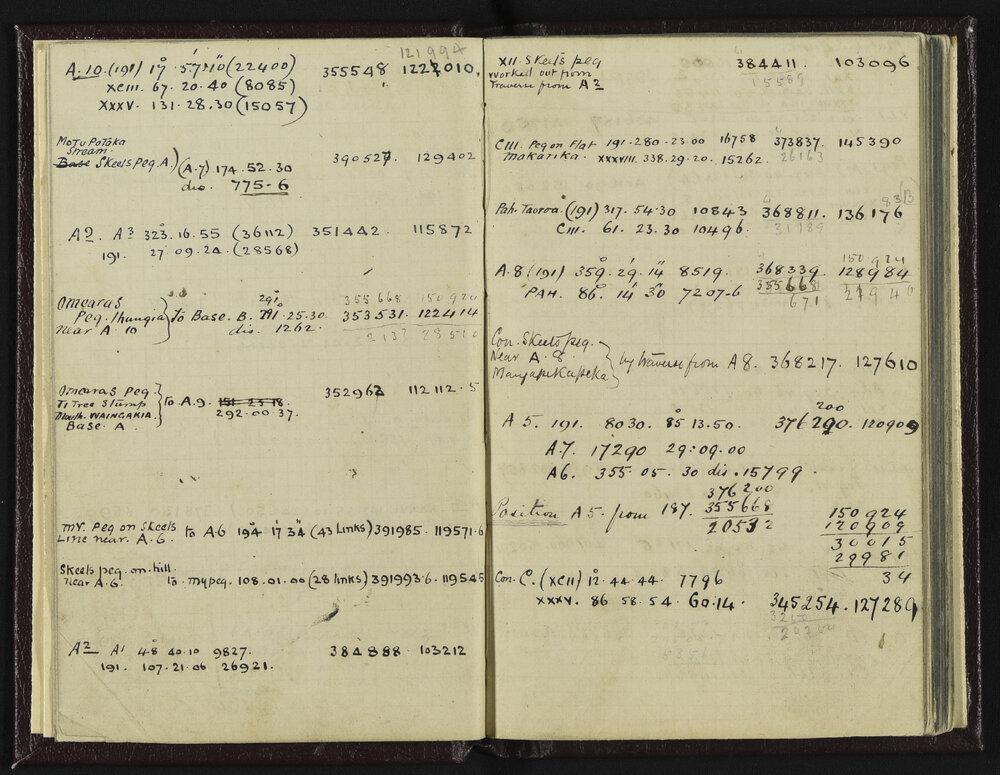 121994
A.10.(191) 17° 57' 10" (22400) 355548 122010,
XCIII. 67. 20. 40 (8085)
XXXV. 131. 28. 30 (15057)
MOTU POTAKA
Stream
Base Skeels Peg. A.) (A.7) 174. 52. 30 390527 129402
dis. 775-6
A9. A3 323. 16. 55 (36112) 351442. 115872
191. 27. 09. 24. (28568)
Omearas 291 355668 150924
Peg. Ihungia to Base. B. 25.30. 353531. 122414
near A. 10 dis. 1262. 2137 28510
Omearas Peg.
Ti Tree Stump to A.9. 352962 112112.5
Mouth. WAINGAKIA. 292.00.37.
Base. A
my. Peg on Skeels to A.6 194° 17' 34" (43 Links) 391985. 119571.6
Line near. A.6.
Skeels peg. on. hill
near A.6. to. my peg. 108.01.00 (28 links) 391993.6. 119545
A2 A1 48° 40.10 9827. 384888. 103212
191. 107.21.06 26921.
XII. Skeels peg 384411. 103096
Worked out from 15589
Traverse from A2
CIII. Peg on Flat 191-280-23.00 16758 373837. 145390
Makarika. XXXVIII. 338.29.20. 15262. 26163
83 (B)
Pah. Taoroa. (191) 317. 54.30 10843 368811. 136176
CIII. 61. 23.30 10496. 31189
150924
A.8 (191) 359. 29. 14 8519. 368339 128984
PAH. 86. 14 30 7207-6 355668 21940
671
Con. Skeels peg.
Near A. 8. by traverse from A8. 368217. 127610
200
A 5. 191. 8030. 85° 13.50. 376290. 120909
A.7. 17290 29:09.00
A6. 355 05. 30 dis. 15799.
376200
Position A 5. from 187. 355668 150924
20532 120909
30015
29981
34
Con. C. (XCII) 12. 44. 44. 7796
XXXV. 86 58.54. 60.14. 345254. 127289